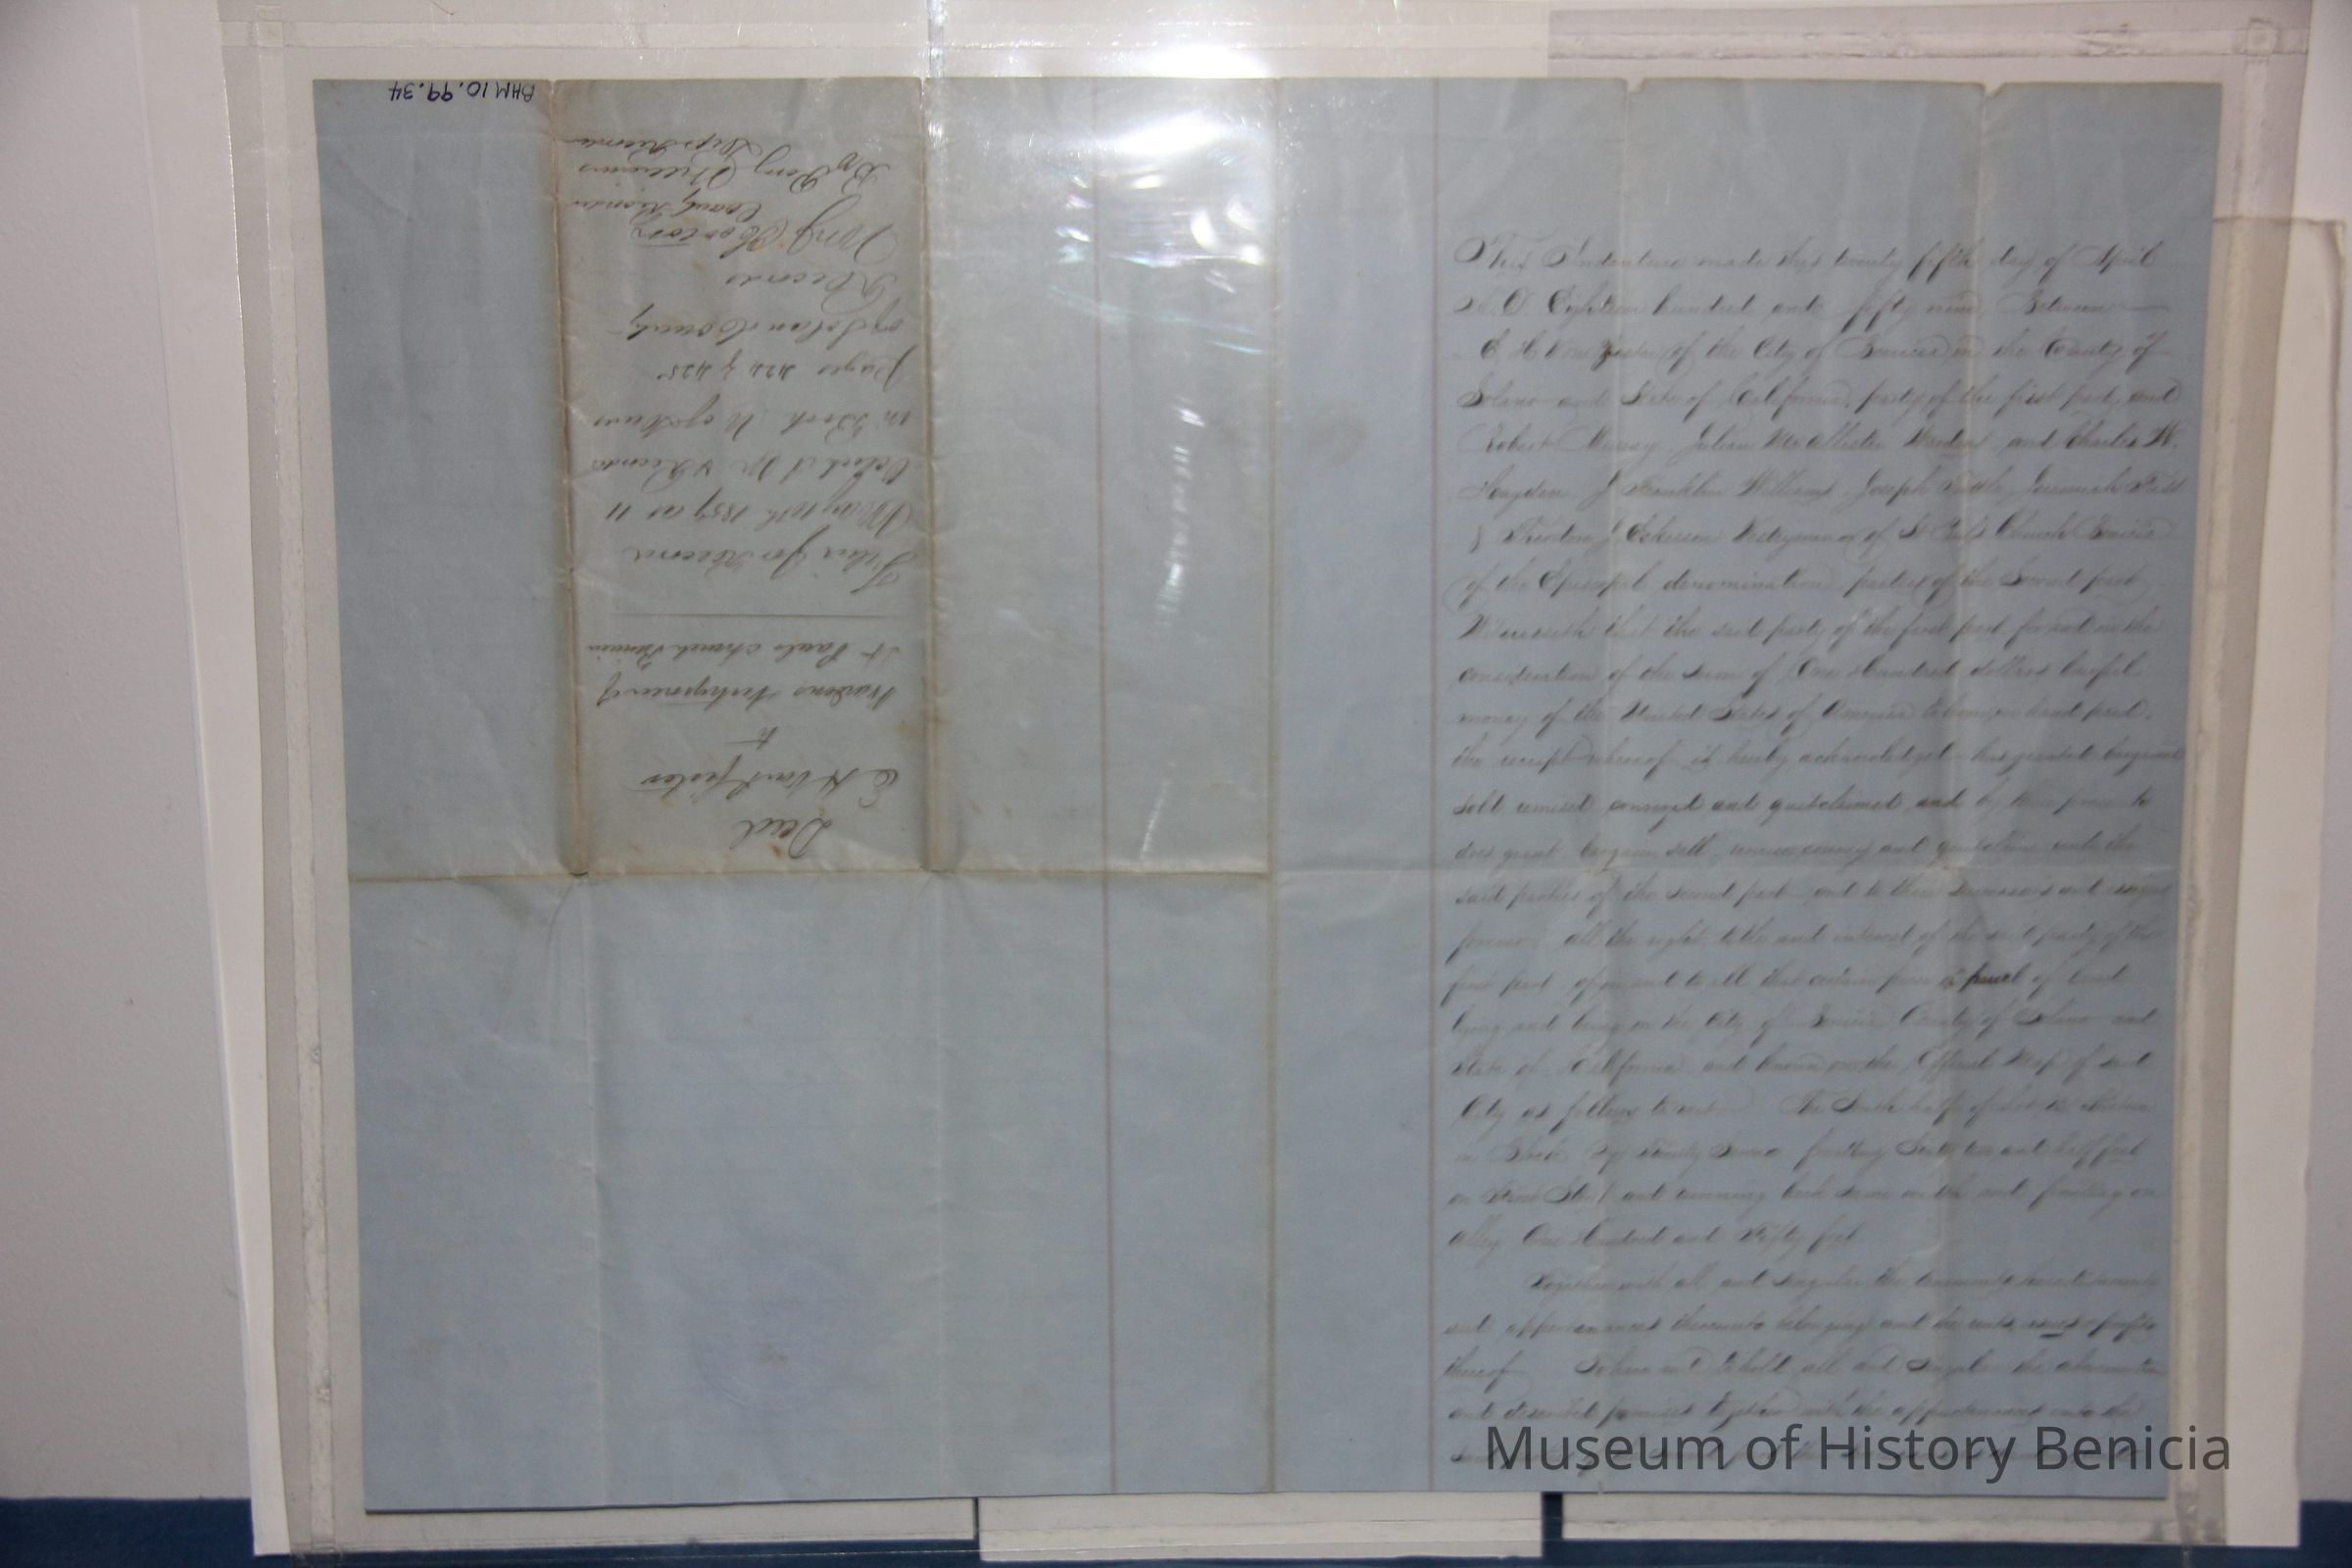 BHM 10.99.34
Deed
E H Von Pfister
to
Wardens Vestrymen of
St Pauls Church Benicia
Filed for Record
May 10th 1859 at 11
Oclock A M & Records
in Book N of Deeds
pages 424 & 425
of Solano County
Records
County Recorder
By Williams
Dep Recorder
This Indenture made this twenty fifth day of April
A D Eighteen hundred and fifty nine Between
E H Von Pfister of the City of Benicia in the County of
Solano and State of California, party of the first part, and
Robert Murray Julian McAllister Wardens and Charles W.
Hayden J Franklin Williams Joseph Tuttle, Jeremiah
& Theodore J Eckerson Vestrymen of St Pauls Church Benicia
of the Episcopal denomination parties of the Second part
Witnesseth that the said party of the first part for and in the
consideration of the sum of One Hundred dollars lawful
money of the United States of America to him in hand paid,
the receipt whereof is hereby acknowledged has granted bargained
sold remised conveyed and quitclaimed and by these presents
does grant bargain sell remise convey and quitclaim unto the
said parties of the second part and to their successors and assigns
forever all the right title and interest of the said party of the
first part of in and to all that certain piece or parcel of land
lying and being in the City of Benicia County of Solano and
State of California and known on the Official Map of said
City as follows to wit The South half of Lot
in Block No Twenty Seven fronting Sixty two and half feet
on First Street and running back same width and fronting on
alley One Hundred and Fifty feet
Together with all and singular the tenements hereditaments
and appurtenances thereunto belonging and the rents issues & profits
thereof To have and to hold all and singular the above mentioned
and described premises together with the appurtenances unto the
Museum of History Benicia